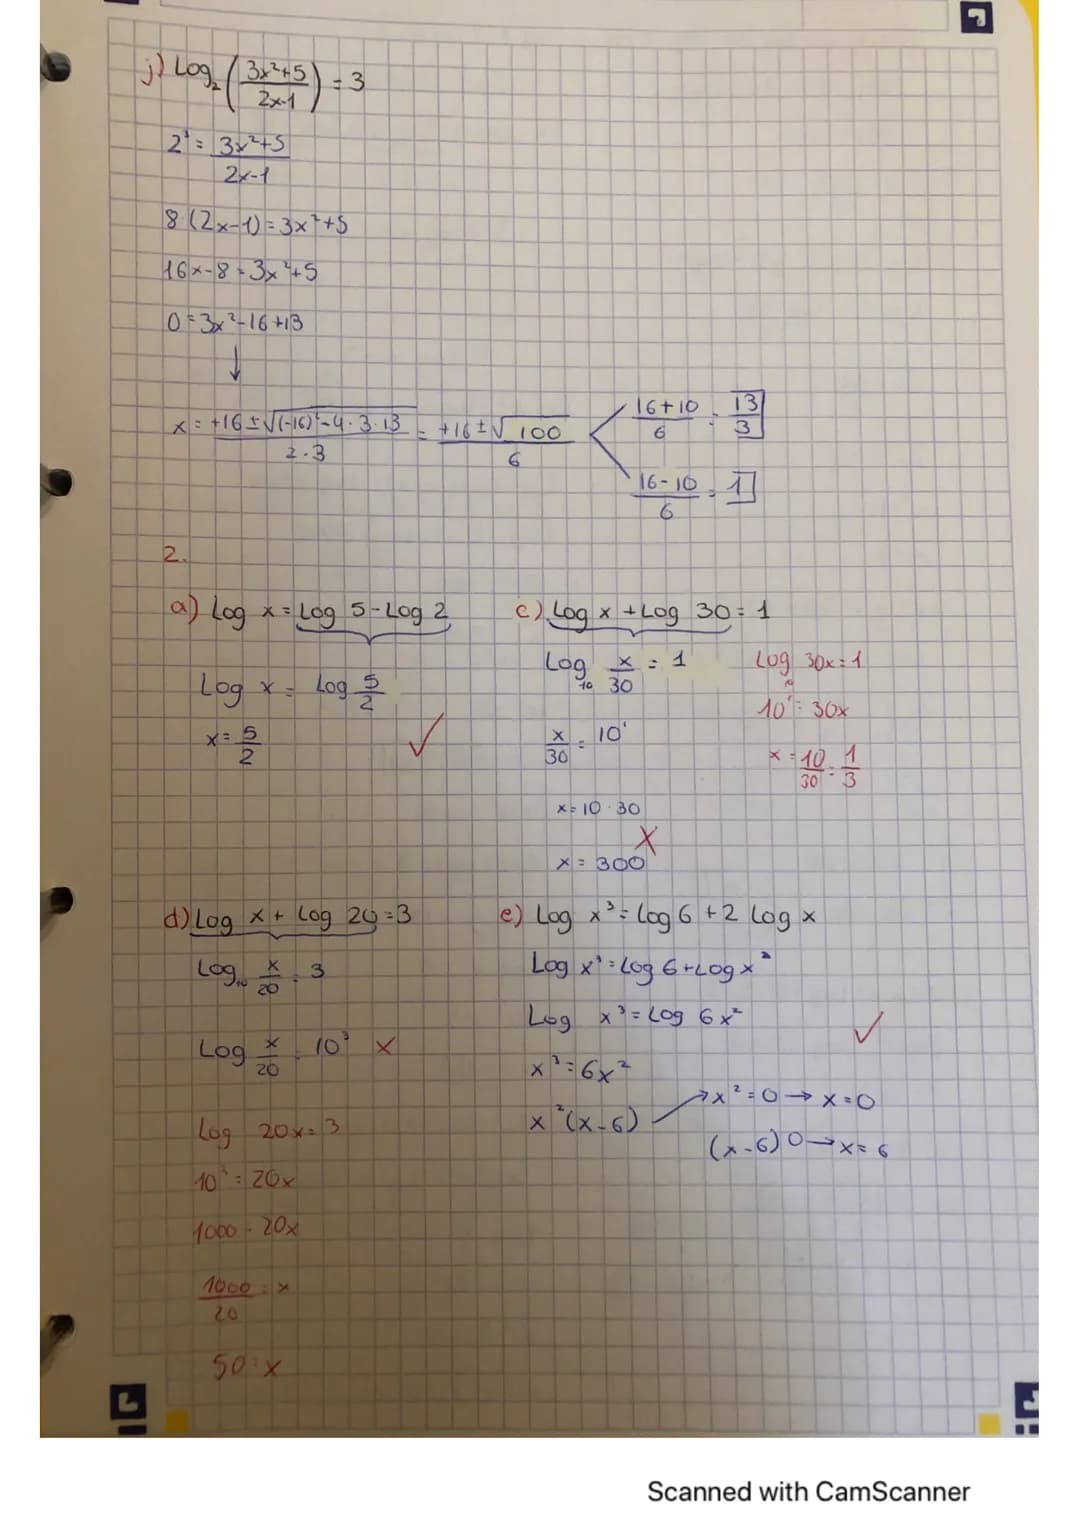 j) Log₂ ( 3x²+5 / 2x-1 ) = 3
2³ = 3x²+5 / 2x-1
8 (2x-1) = 3x²+5
16x-8 = 3x²+5
0 = 3x²-16+13
↓
x = +16 ± √(-16)²-4·3·13 / 2·3 = +16 ± √100 / 6
16+10 / 6 = 13 / 3
16-10 / 6 = 1
2.
a) Log x = Log 5 - Log 2
Log x = Log 5/2
x = 5/2 ✓
c) Log x + Log 30 = 1
Log₁₀ x/30 = 1
x/30 = 10¹
x = 10·30
x = 300 X
Log₁₀ 30x = 1
10¹ = 30x
x = 10/30 = 1/3
d) Log x + Log 20 = 3
Log₁₀ x/20 = 3
Log x/20 = 10³ X
Log 20x = 3
10³ = 20x
1000 = 20x
1000/20 = x
50 = x
e) Log x³ = Log 6 + 2 Log x
Log x³ = Log 6 + Log x²
Log x³ = Log 6x² ✓
x³ = 6x²
x²(x-6) → x² = 0 → x = 0
(x-6) 0 → x = 6
Scanned with CamScanner